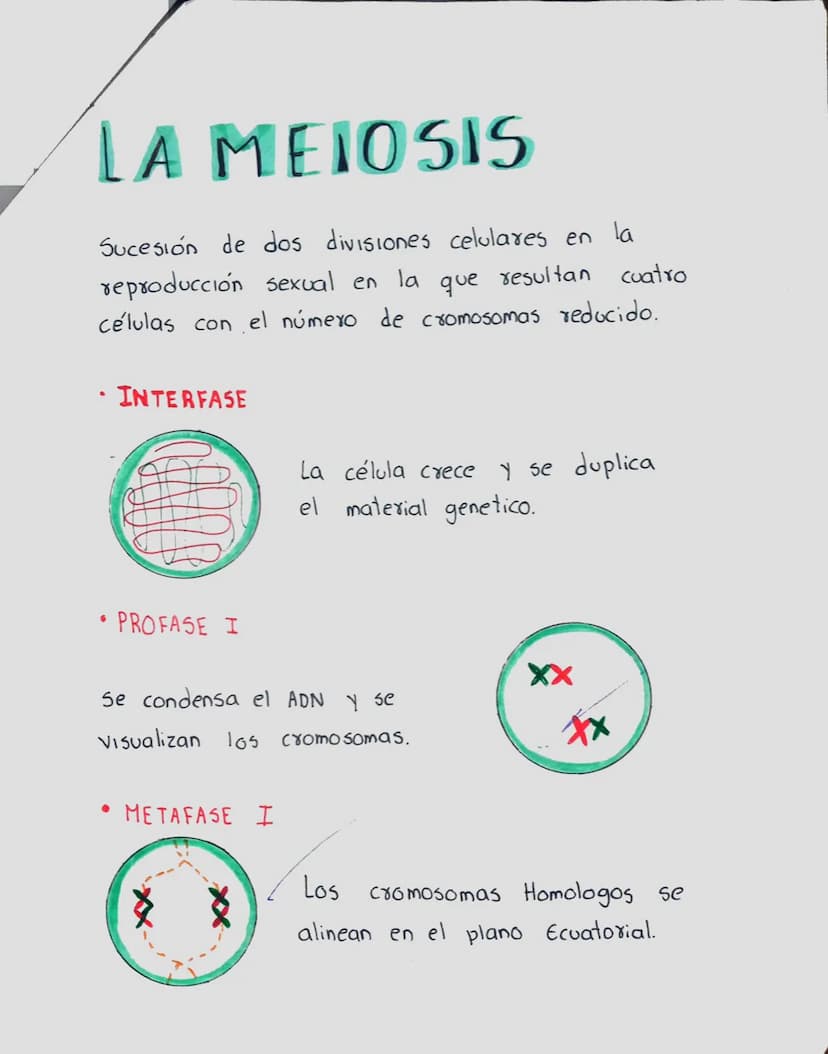 LA MEIOSIS
Sucesión de dos divisiones celulares en la
reproducción sexual en la que resultan cuatro
células con el número de cromosomas reducido.
• INTERFASE
La célula crece y se duplica
el material genetico.
• PROFASE I
Se condensa el ADN y se
visualizan los cromosomas.
• METAFASE I
Los cromosomas Homologos se
alinean en el plano Ecuatorial.